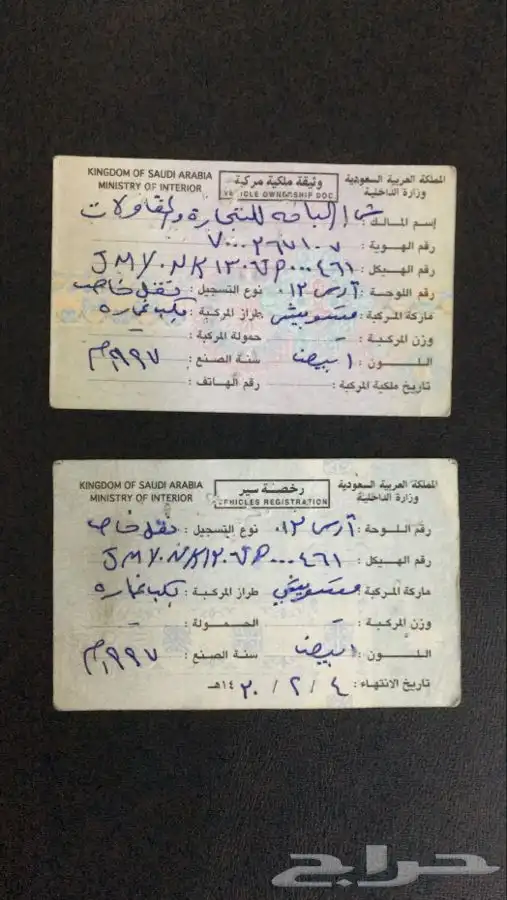 KINGDOM OF SAUDI ARABIA
MINISTRY OF INTERIOR
وثيقة ملكية مركبة
VEHICLE OWNERSHIP DOC.
المملكة العربية السعودية
وزارة الداخلية
إسم المالك : الباحه للتجارة والمقاولات
رقم الهوية : ٧٠٠٠٢٦٧١٠٧
رقم الهيكل : ٤٦١
رقم اللوحة : نوع التسجيل : نقل خاص
ماركة المركبة : متسوبيشي طراز المركبة : بكب غماره
وزن المركبة : حمولة المركبة : -
اللون : ابيض سنة الصنع : ١٩٩٧م
تاريخ ملكية المركبة : رقم الهاتف :
KINGDOM OF SAUDI ARABIA
MINISTRY OF INTERIOR
رخصة سير
VEHICLES REGISTRATION
المملكة العربية السعودية
وزارة الداخلية
رقم اللوحة : نوع التسجيل : نقل خاص
رقم الهيكل : ٤٦١
ماركة المركبة : متسوبيشي طراز المركبة : بكب غماره
وزن المركبة : - الحمولة : -
اللون : ابيض سنة الصنع : ١٩٩٧م
تاريخ الانتهاء : ٤ / ٢ / ١٤٢٠هـ
حراج